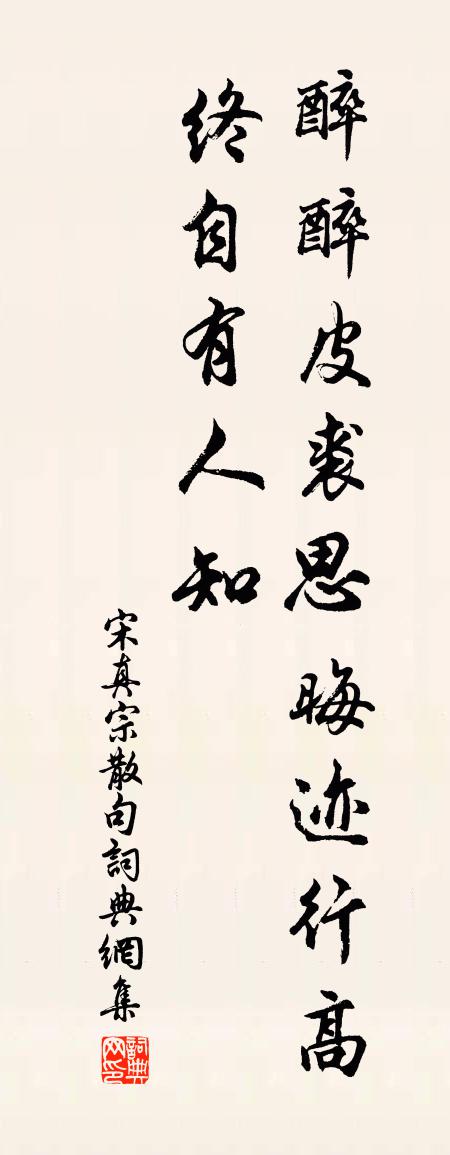 醉醉皮裘思晦迹行高
終自有人知
宋真宗散句詞典網集
詞典网印